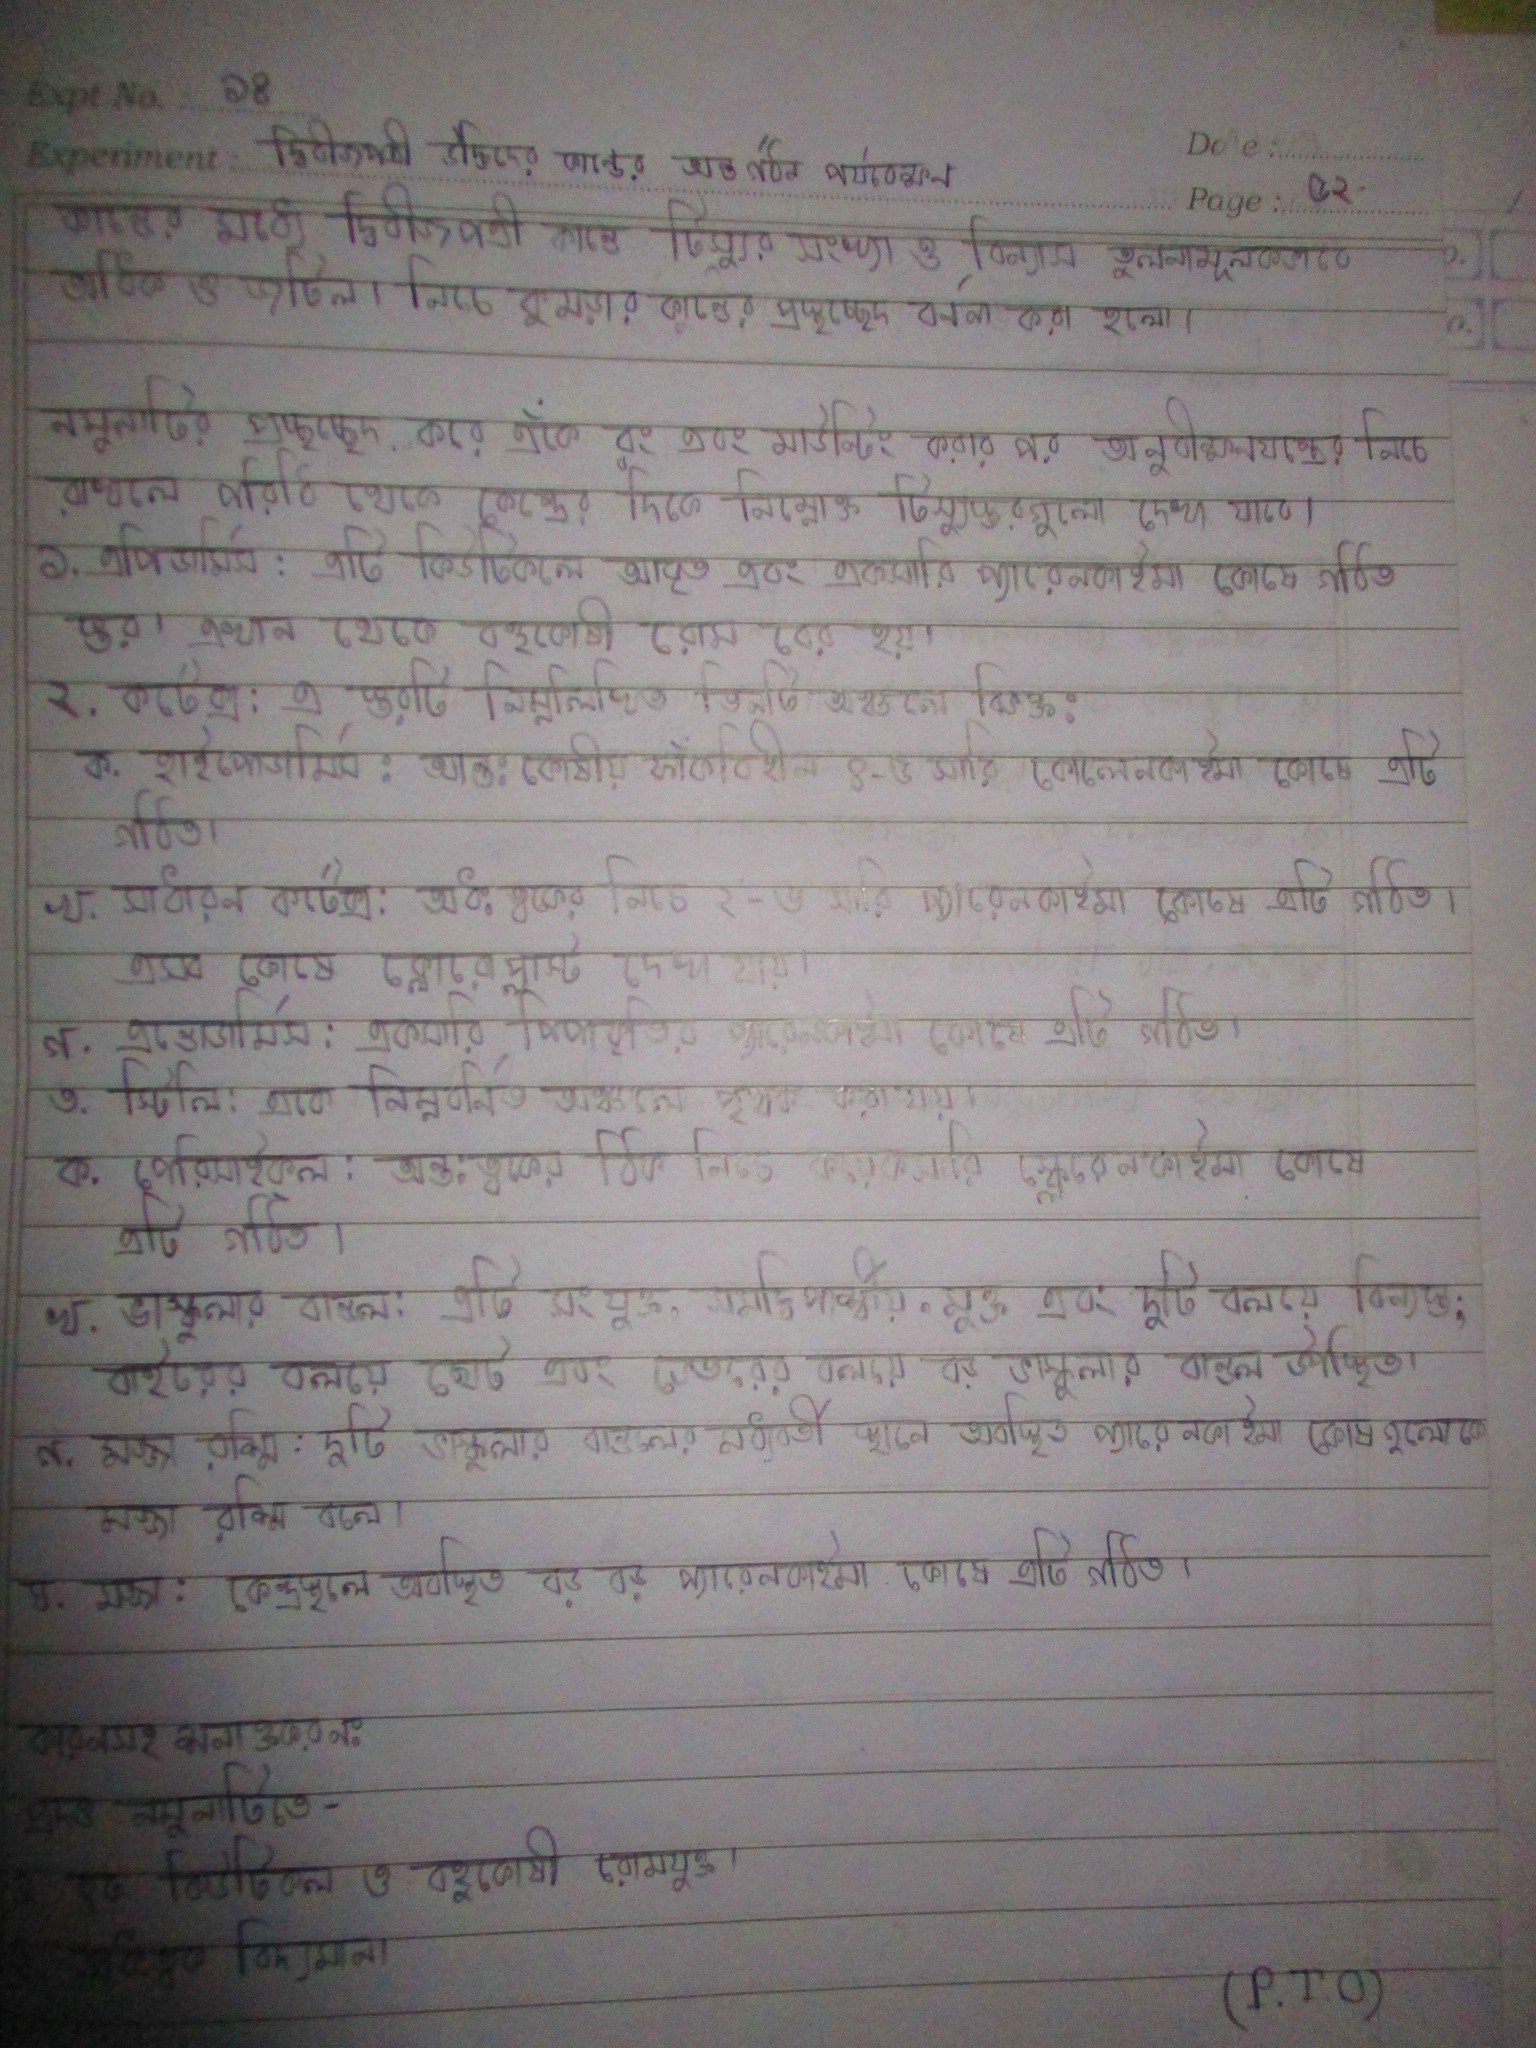 Expt No. : ১৪
Experiment : দ্বিবীজপত্রী উদ্ভিদের কান্ডের অন্তর্গঠন পর্যবেক্ষন
Date :
Page : ৫২
কান্ডের মধ্যে দ্বিবীজপত্রী কান্ডে টিস্যুর সংখ্যা ও বিন্যাস তুলনামূলকভাবে
অধিক ও জটিল। নিচে কুমড়ার কান্ডের প্রস্থচ্ছেদ বর্ননা করা হলো।
নমুনাটির প্রস্থচ্ছেদ করে এঁকে রং এবং মাউন্টিং করার পর অনুবীক্ষনযন্ত্রের নিচে
রাখলে পরিধি থেকে কেন্দ্রের দিকে নিম্নোক্ত টিস্যুস্তরগুলো দেখা যাবে।
১. এপিডার্মিস : এটি কিউটিকলে আবৃত এবং একসারি প্যারেনকাইমা কোষে গঠিত
স্তর। এখান থেকে বহুকোষী রোম বের হয়।
২. কর্টেক্স : এ স্তরটি নিম্নলিখিত তিনটি অঞ্চলে বিভক্ত :
ক. হাইপোডার্মিস : আন্তঃকোষীয় ফাঁকবিহীন ৪-৬ সারি কোলেনকাইমা কোষে এটি
গঠিত।
খ. সাধারন কর্টেক্স : অধঃত্বকের নিচে ২-৩ সারি প্যারেনকাইমা কোষে এটি গঠিত।
এসব কোষে ক্লোরোপ্লাস্ট দেখা যায়।
গ. এন্ডোডার্মিস : একসারি পিপাকৃতির প্যারেনকাইমা কোষে এটি গঠিত।
৩. স্টিলি : একে নিম্নবর্নিত অঞ্চলে পৃথক করা যায়।
ক. পেরিসাইকল : অন্তঃত্বকের ঠিক নিচে কয়েকসারি স্ক্লেরেনকাইমা কোষে
এটি গঠিত।
খ. ভাস্কুলার বান্ডল : এটি সংযুক্ত, সমদ্বিপার্শ্বীয়, মুক্ত এবং দুটি বলয়ে বিন্যস্ত;
বাইরের বলয়ে ছোট এবং ভেতরের বলয়ে বড় ভাস্কুলার বান্ডল উপস্থিত।
গ. মজ্জা রশ্মি : দুটি ভাস্কুলার বান্ডলের মধ্যবর্তী স্থানে অবস্থিত প্যারেনকাইমা কোষগুলোকে
মজ্জা রশ্মি বলে।
ঘ. মজ্জা : কেন্দ্রস্থলে অবস্থিত বড় বড় প্যারেনকাইমা কোষে এটি গঠিত।
কারনসহ শনাক্তকরন :
প্রদত্ত নমুনাটিতে -
কিউটিকল ও বহুকোষী রোমযুক্ত।
অধঃত্বক বিদ্যমান।
(P.T.O)